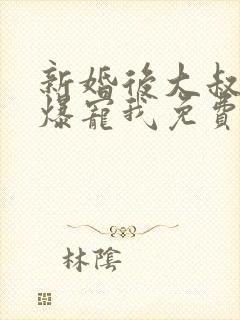 新婚後大叔
爆寵我免費
林陰